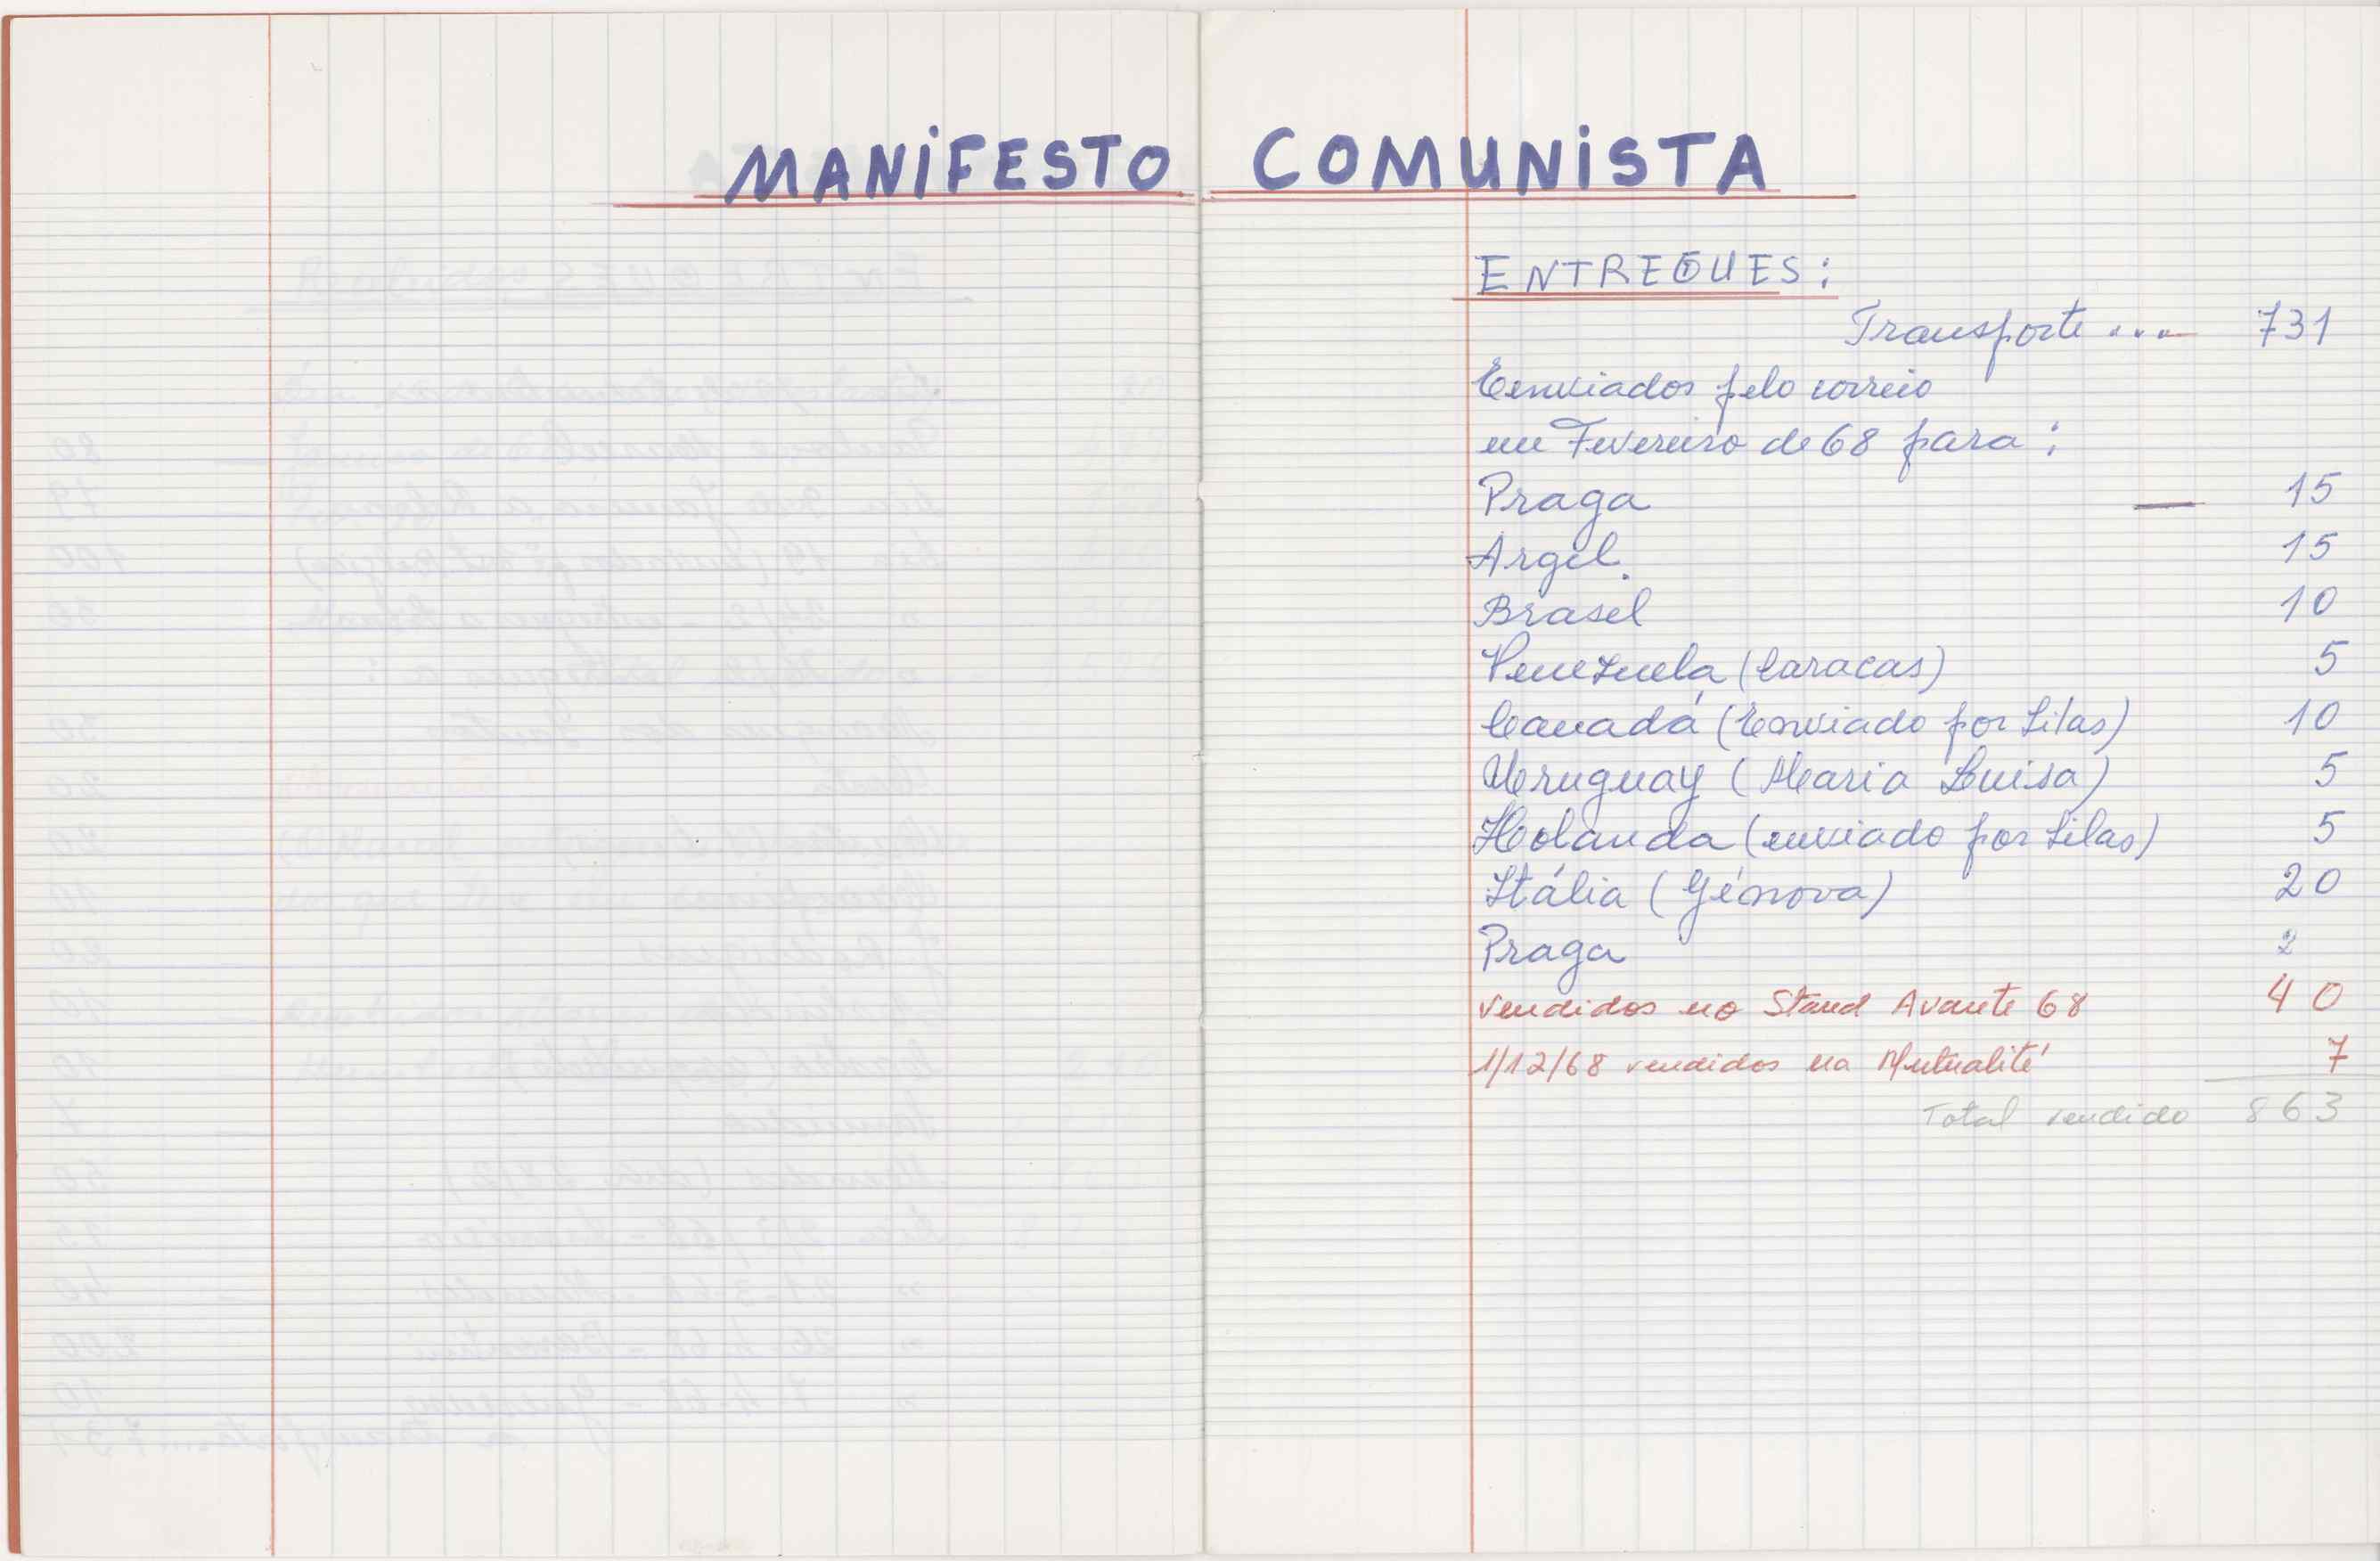 MANIFESTO COMUNISTA
ENTREGUES:
Transporte .... 731
Eenviados pelo correio
em Fevereiro de 68 para:
Praga — 15
Argel. 15
Brasel 10
Venezuela (Caracas) 5
Canadá (Enviado por Lilas) 10
Uruguay (Maria Luisa) 5
Holanda (enviado por Lilas) 5
Itália (Génova) 20
Praga 2
vendidos no Stand Avante 68 40
1/12/68 vendidos na Mutualité 7
Total vendido 863